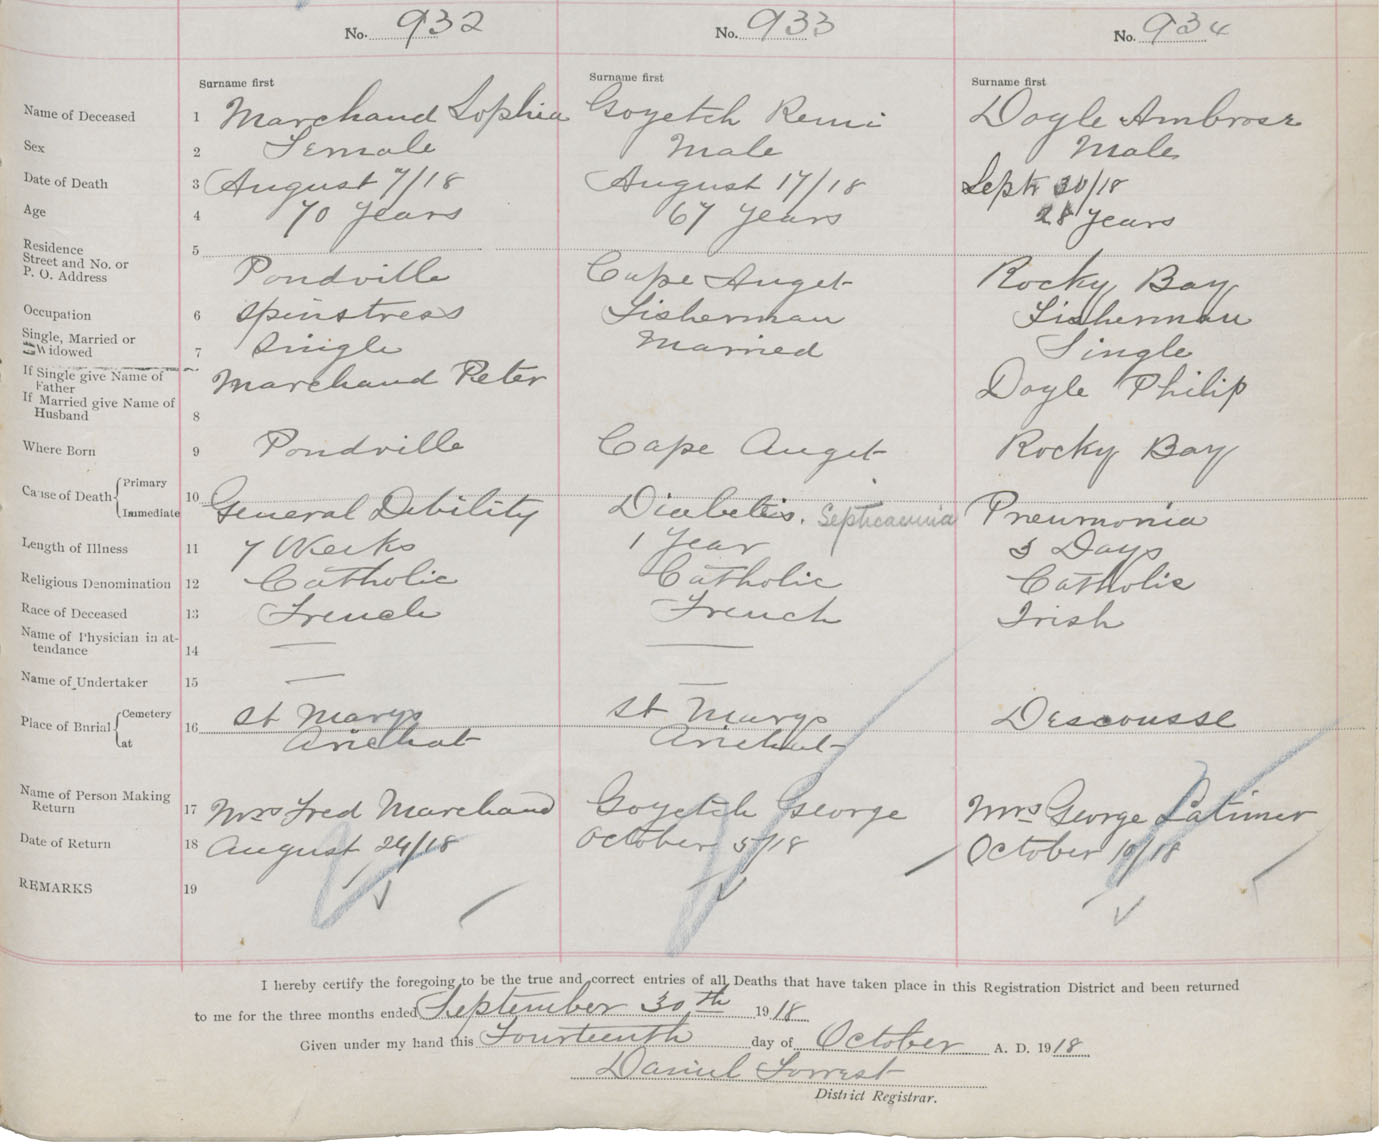 No. 932 No. 933 No. 934
Surname first Surname first Surname first
Name of Deceased 1 Marchand Sophia Goyetch Remi Doyle Ambrose
Sex 2 Female Male Male
Date of Death 3 August 7/18 August 17/18 Sept 30/18
Age 4 70 years 67 years 28 years
Residence 5
Street and No. or
P. O. Address Pondville Cape Auget Rocky Bay
Occupation 6 Spinstress Fisherman Fisherman
Single, Married or
Widowed 7 Single Married Single
If Single give Name of
Father Marchand Peter Doyle Philip
If Married give Name of
Husband 8
Where Born 9 Pondville Cape Auget Rocky Bay
Cause of Death Primary 10
Immediate General Debility Diabetis. Septicaemia Pneumonia
Length of Illness 11 7 Weeks 1 Year 3 Days
Religious Denomination 12 Catholic Catholic Catholic
Race of Deceased 13 French French Irish
Name of Physician in at-
tendance 14 — —
Name of Undertaker 15 — —
Place of Burial Cemetery 16 St Marys St Marys Descousse
at Arichat Arichat
Name of Person Making
Return 17 Mrs Fred Marchand Goyetch George Mrs George Latimer
Date of Return 18 August 24/18 October 5/18 October 10/18
REMARKS 19
I hereby certify the foregoing to be the true and correct entries of all Deaths that have taken place in this Registration District and been returned
to me for the three months ended September 30th 1918
Given under my hand this Fourteenth day of October A. D. 1918
Daniel Forrest
District Registrar.